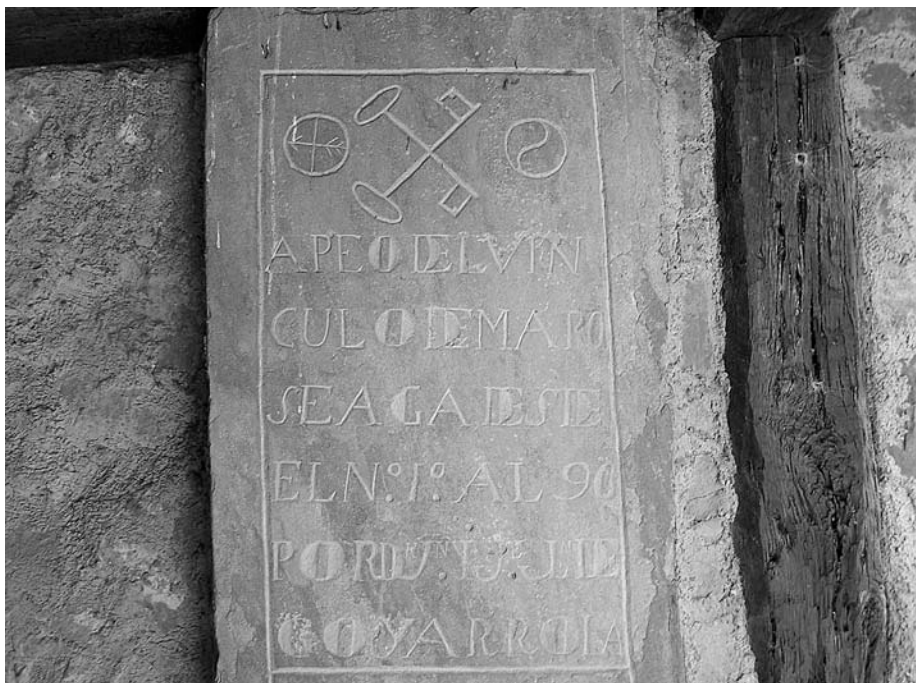 APEO DEL VIN
CULO DE MARO
SE AGA DESDE
EL N.º 1º AL 90
POR
GOYARROLA